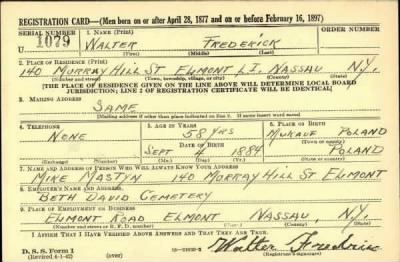 REGISTRATION CARD—(Men born on or after April 28, 1877 and on or before February 16, 1897)
SERIAL NUMBER 1. NAME (Print) ORDER NUMBER
U 1079 WALTER FREDERICK
(First) (Middle) (Last)
2. PLACE OF RESIDENCE (Print)
140 MURRAY HILL ST ELMONT L.I. NASSAU N.Y.
(Number and street) (Town, township, village, or city) (County) (State)
[THE PLACE OF RESIDENCE GIVEN ON THE LINE ABOVE WILL DETERMINE LOCAL BOARD
JURISDICTION; LINE 2 OF REGISTRATION CERTIFICATE WILL BE IDENTICAL]
3. MAILING ADDRESS
SAME
[Mailing address if other than place indicated on line 2. If same insert word same]
4. TELEPHONE 5. AGE IN YEARS 6. PLACE OF BIRTH
NONE 58 YRS POLAND
DATE OF BIRTH (Town or county)
SEPT 4 1884 POLAND
(Exchange) (Number) (Mo.) (Day) (Yr.) (State or country)
7. NAME AND ADDRESS OF PERSON WHO WILL ALWAYS KNOW YOUR ADDRESS
MIKE MASTYN 140 MURRAY HILL ST ELMONT
8. EMPLOYER'S NAME AND ADDRESS
BETH DAVID CEMETERY
9. PLACE OF EMPLOYMENT OR BUSINESS
ELMONT ROAD ELMONT NASSAU, N.Y.
(Number and street or R. F. D. number) (Town) (County) (State)
I AFFIRM THAT I HAVE VERIFIED ABOVE ANSWERS AND THAT THEY ARE TRUE.
D. S. S. Form 1
(Revised 4-1-42) (over) Walter Fredrick
(Registrant's signature)